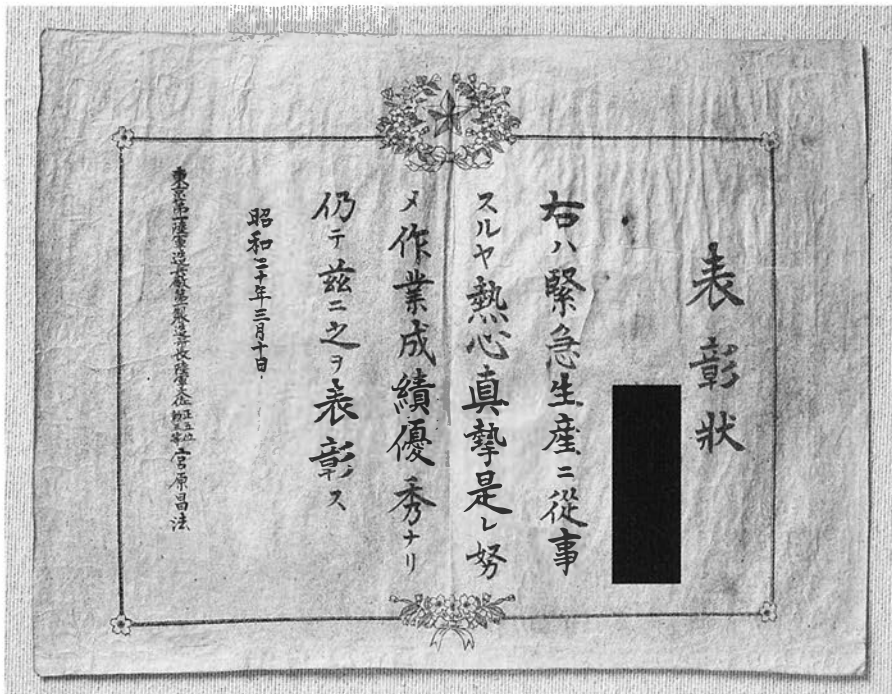 表彰状
右ハ緊急生産ニ從事
スルヤ熱心真摯是レ努
メ作業成績優秀ナリ
仍テ茲ニ之ヲ表彰ス
昭和二十年三月十日
東京第一陸軍造兵廠第一製造所長陸軍大佐 正五位 勲三等 宮原昌法